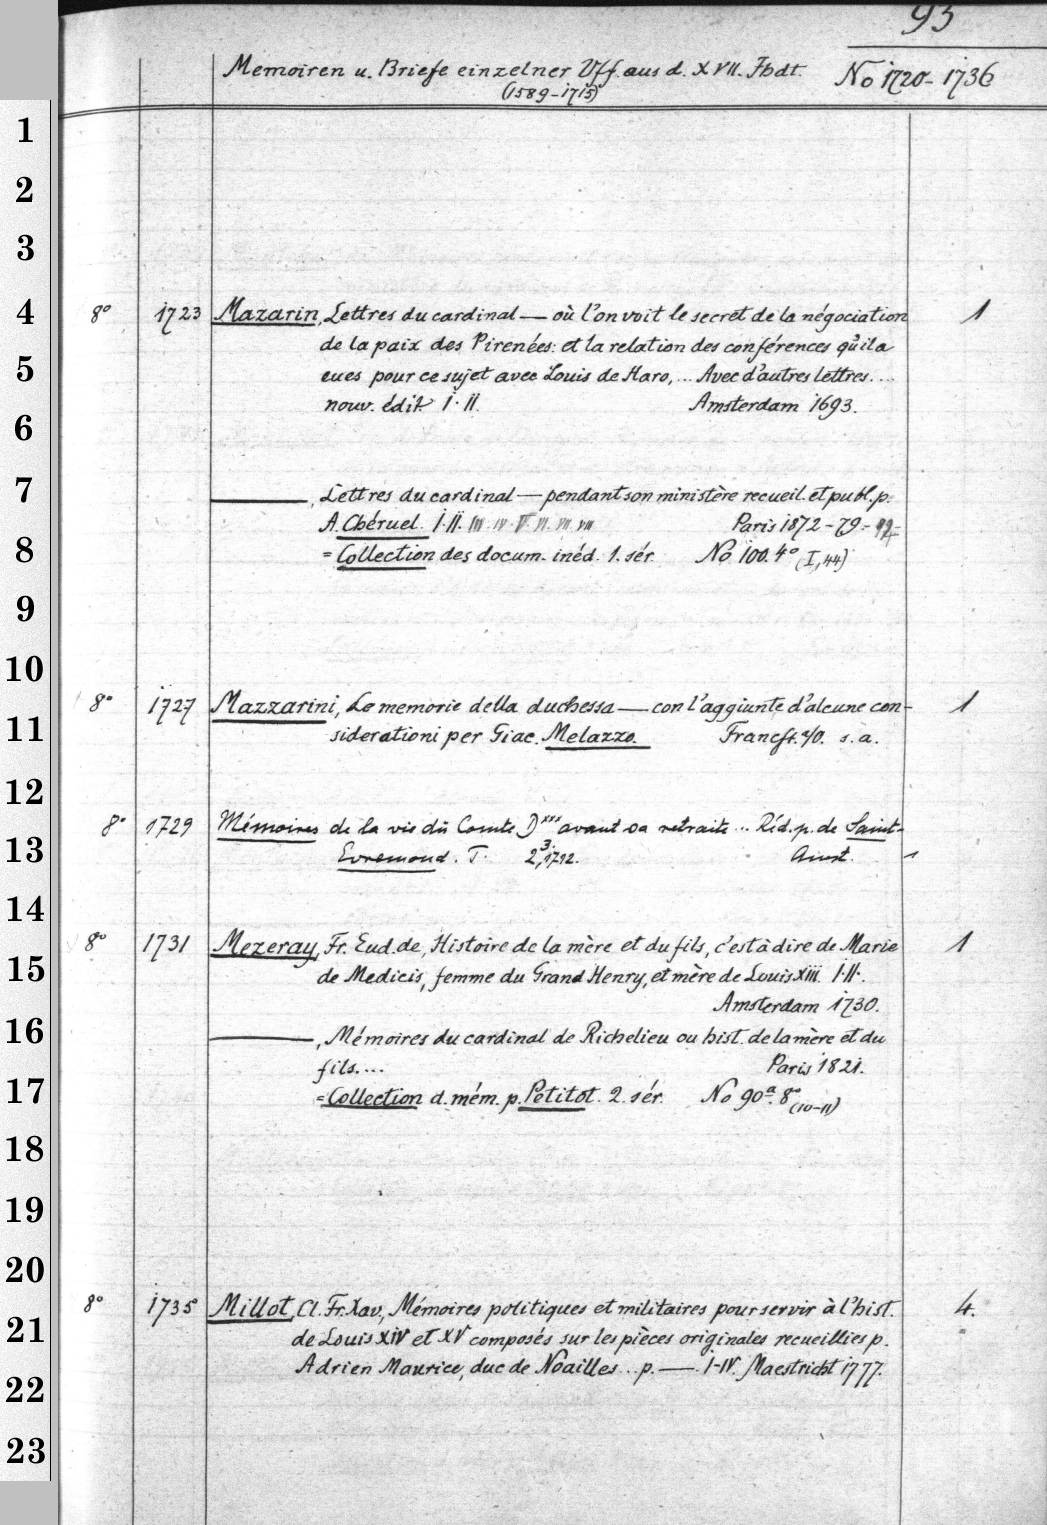 93
Memoiren u. Briefe einzelner Vff. aus d. XVII. Jhdt. No 1720-1736
(1589-1715)
8° 1723 Mazarin, Lettres du cardinal — où l'on voit le secret de la négociation 1
de la paix des Pirenées: et la relation des conférences qu'il a
eues pour ce sujet avec Louis de Haro, ... Avec d'autres lettres....
nouv. édit I-II. Amsterdam 1693.
—, Lettres du cardinal — pendant son ministère recueil. et publ. p.
A. Chéruel. I.II. III. IV. V. VI. VII. VIII Paris 1872-79.-
= Collection des docum. inéd. 1. sér. No 100. 4° (I, 44)
8° 1727 Mazzarini, Le memorie della duchessa — con l'aggiunte d'alcune con- 1
siderationi per Giac. Melazzo. Francft. a/O. s. a.
8° 1729 Mémoires de la vie du Comte D*** avant sa retraite ... Réd. p. de Saint-
Evremond. T. 2, 3. 1712. Amst. 1
8° 1731 Mezeray, Fr. Eud. de, Histoire de la mère et du fils, c'est à dire de Marie 1
de Medicis, femme du Grand Henry, et mère de Louis XIII. I-II.
Amsterdam 1730.
—, Mémoires du cardinal de Richelieu ou hist. de la mère et du
fils.... Paris 1821.
= Collection d. mém. p. Petitot. 2. sér. No 90a. 8° (10-11)
8° 1735 Millot, Cl. Fr. Xav., Mémoires politiques et militaires pour servir à l'hist. 4.
de Louis XIV et XV composés sur les pièces originales recueillies p.
Adrien Maurice, duc de Noailles ... p. — I-IV. Maestricht 1777.
1
2
3
4
5
6
7
8
9
10
11
12
13
14
15
16
17
18
19
20
21
22
23